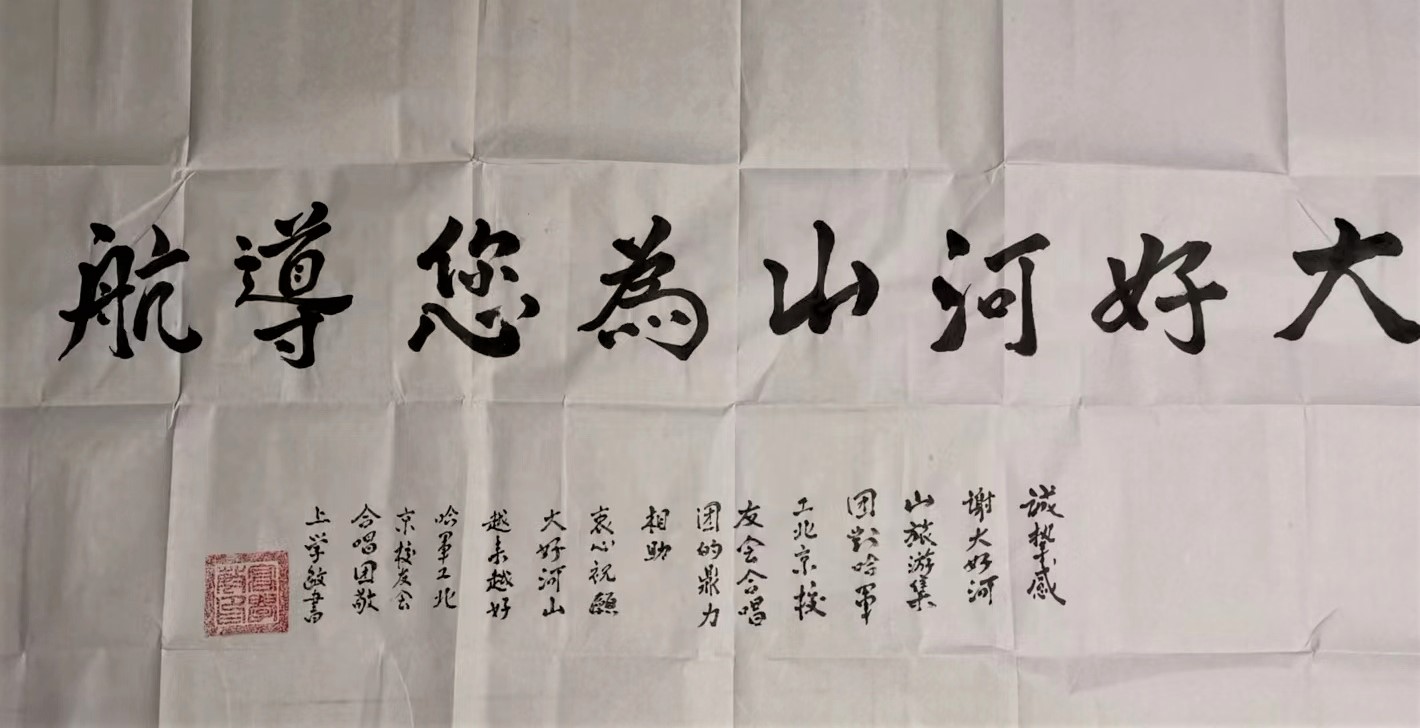 大好河山為您導航
誠摯感
谢大好河
山旅游集
团對哈軍
工北京校
友会合唱
团的鼎力
相助
衷心祝願
大好河山
越来越好
哈軍工北
京校友会
合唱团敬
上学敏書